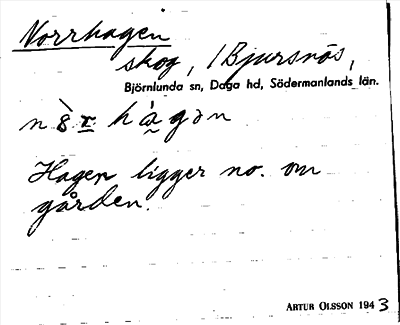 Norrhagen
skog, /Bjursnäs,
Björnlunda sn, Daga hd, Södermanlands län.
Hagen ligger no. om
gården.
ARTUR OLSSON 1943